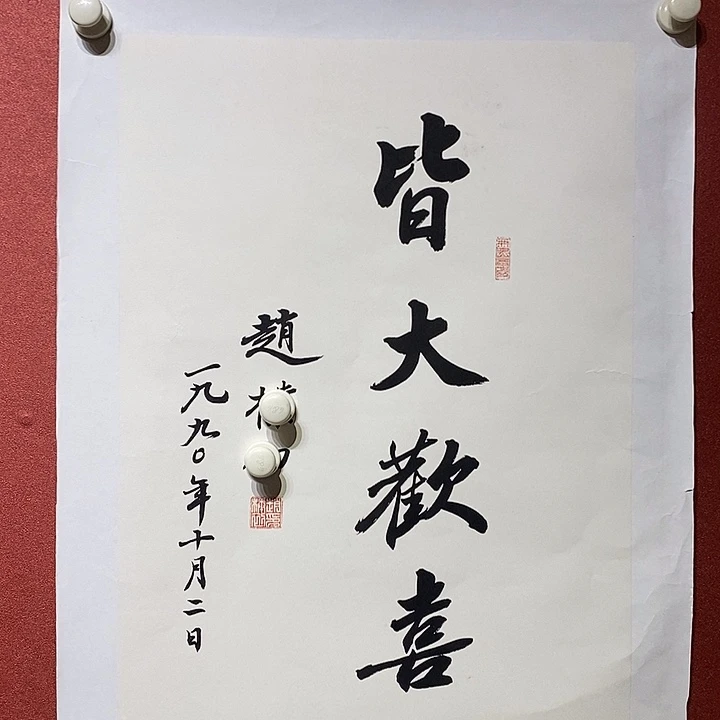 皆大歡喜
趙
一九九〇年十月二日